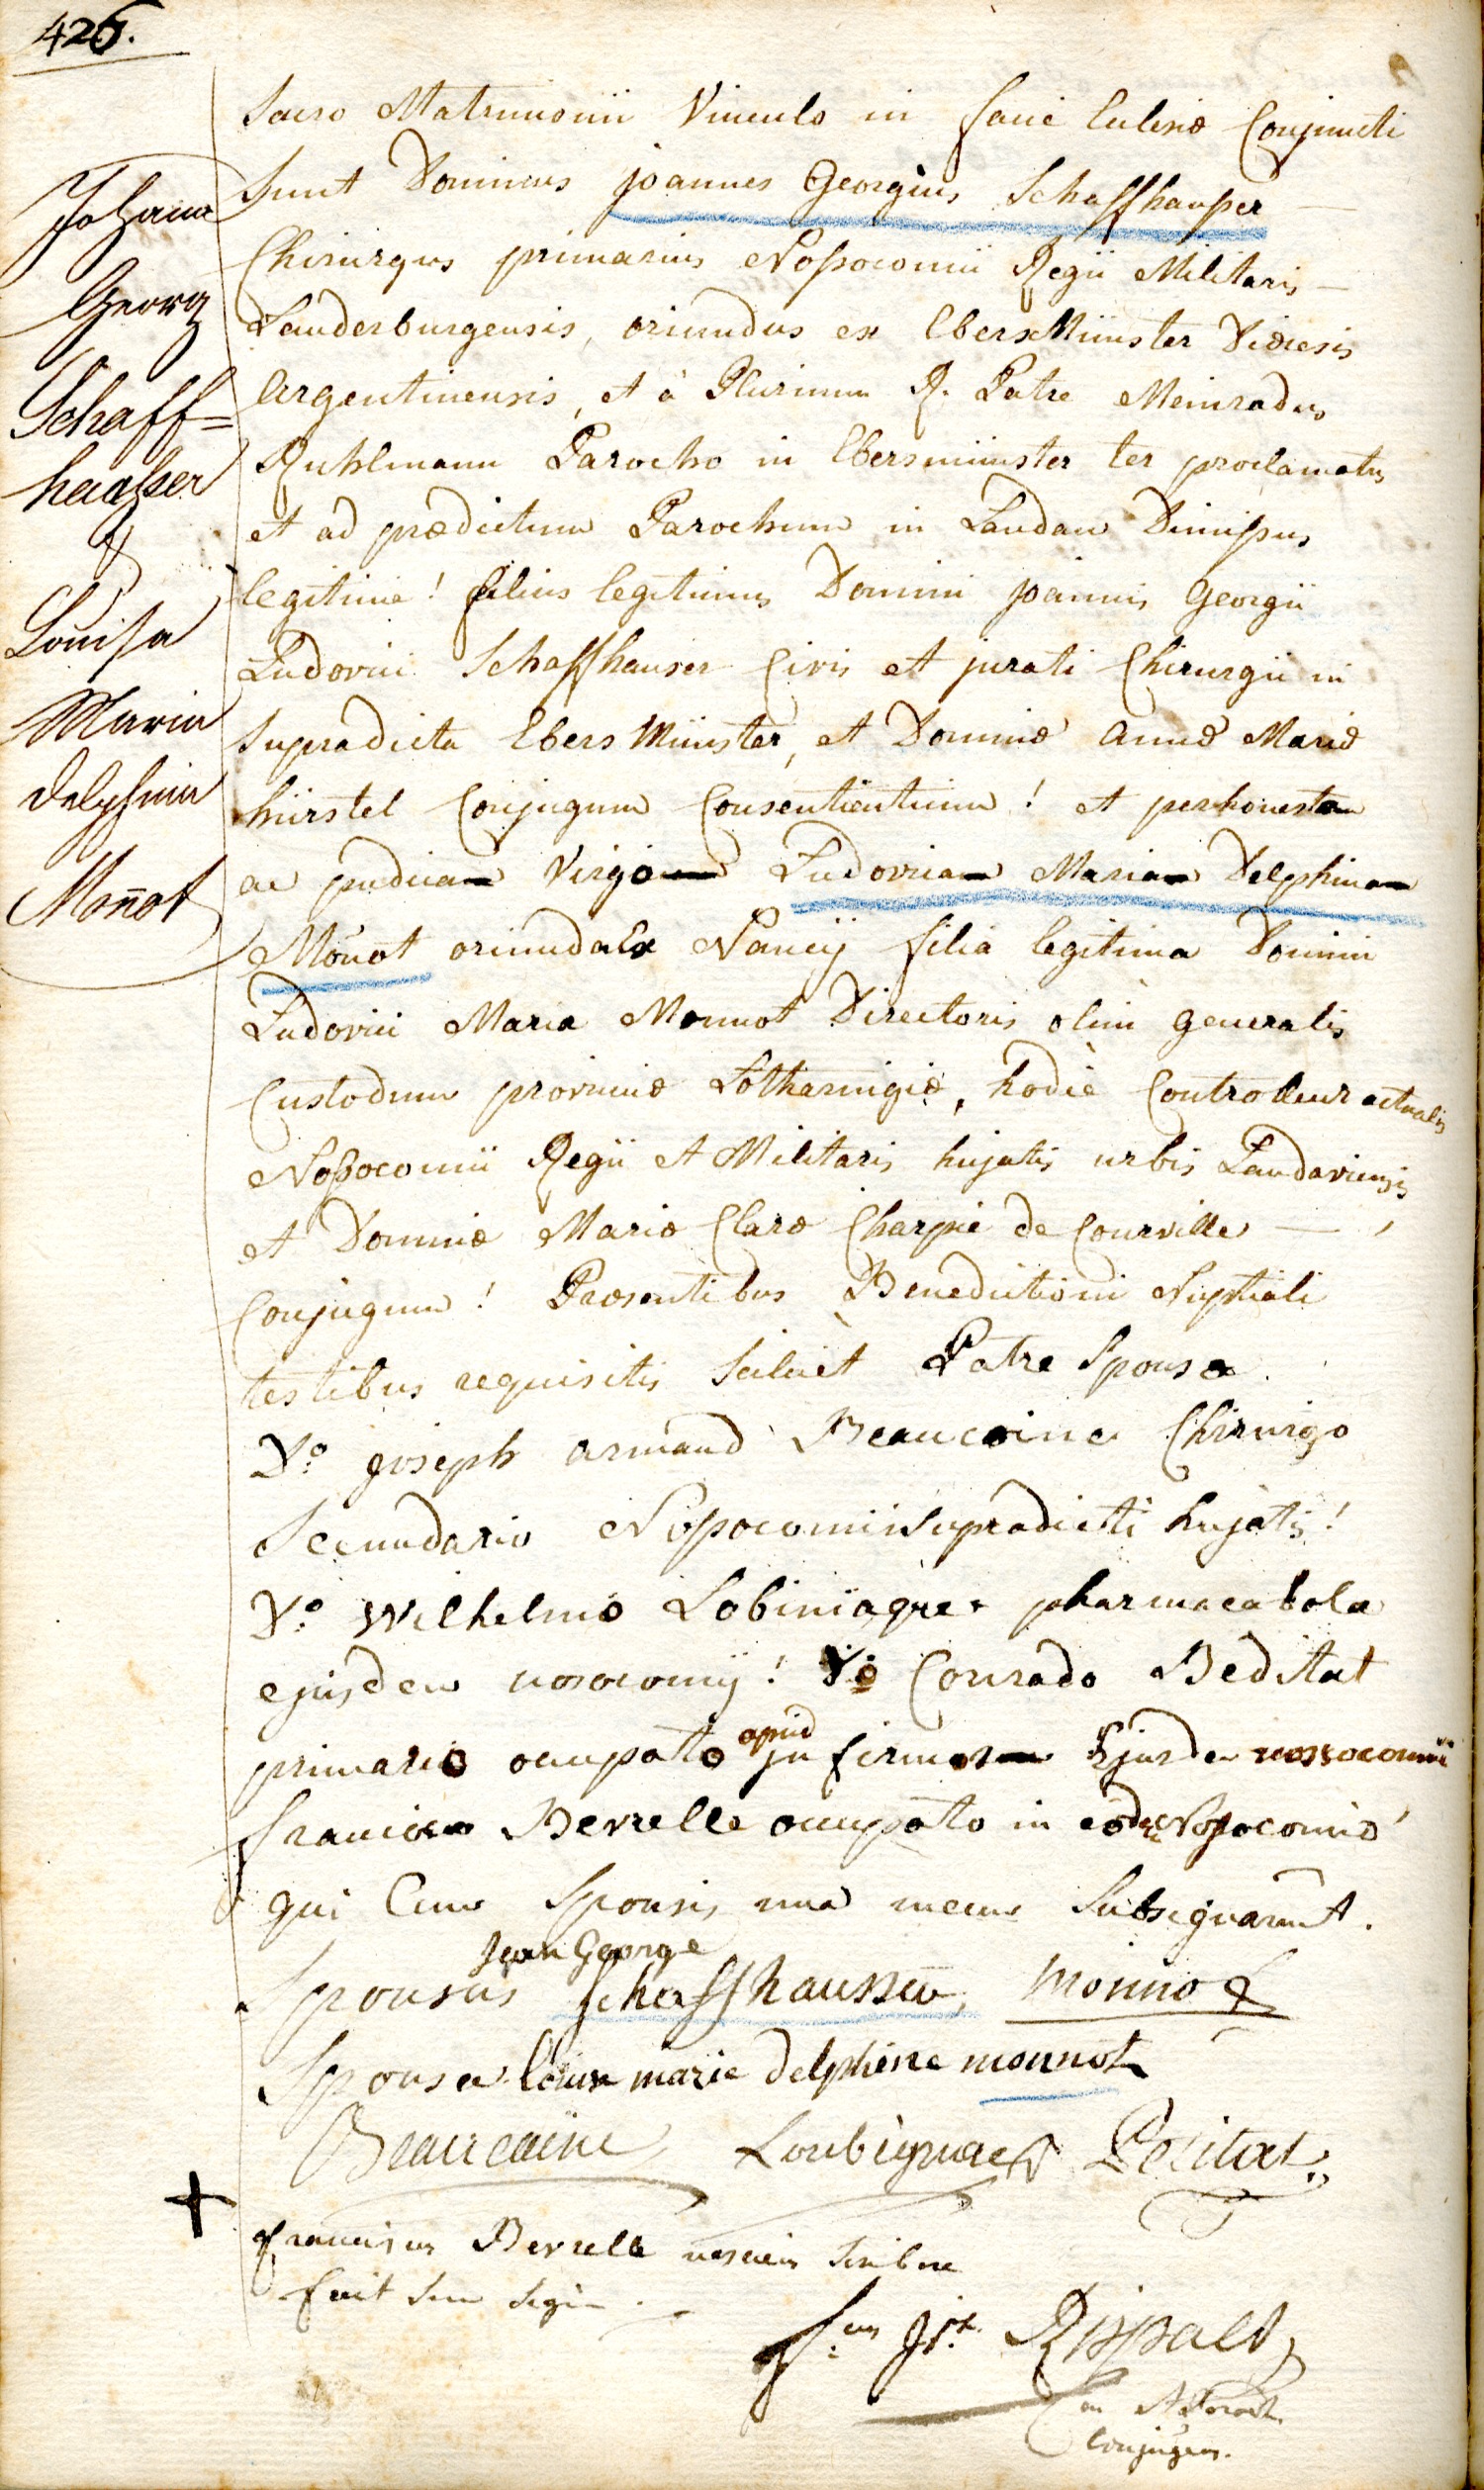 426.
Johann
Georg
Schaff=
hausser
&
Louisa
Maria
delphina
Mon̄ot
Sacro Matrimonii Vinculo in facie Eclesiæ Conjuncti
Sunt Dominus joannes Georgius Schaffhausser —
Chirurgus primarius Nosocomii Regii Militaris —
Lauderburgensis, oriundus ex EbersMünster Diœcesis
Argentinensis, et à Plurimum R. Patre Meinradus
Ruhlmann Parocho in Ebersmünster ter proclamatus
et ad prædictum Parochum in Landau Dimissus
legitimè! filius legitimus Domini joannis Georgii
Ludovici Schaffhauser Civis et jurati Chirurgii in
Supradicta EbersMünster, et Dominæ Annæ Mariæ
hürstel Conjugum Consentientium! et perhonesta
ac pudica Virgo Ludovica Maria Delphina
Mon̄ot oriunda Ex Nancij filia legitima Domini
Ludovici Maria Monnot Directoris olim generalis
Custodum provinciæ Lotharingiæ, hodiè Controlleur actualis
Nosocomii Regii et Militaris hujatis urbis Landaviensis
et Dominæ Mariæ Claræ Charpié de Courville —
Conjugum! Præsentibus Benedictioni Nuptiali
testibus requisitis Scilicèt Patre Sponsæ.
Do. joseph armand Beaucaine Chirurgo
Secundario Nosocomii Supradicti hujatis!
Do. Wilhelmo Lobiniagre pharmacabola
ejusdem nosocomij! Do Conrado Beditat
primario occupato apud infirmos Ejusdem nossocomii
francisco Berrelle occupato in eodem Nosocomio
qui Cum Sponsis una mecum Subsignarunt.
Jean George
Sponsus Schaffhausser, monnot
Sponsa louise marie delphine monnot
Beaucaine Loubignac Petitat
+
franciscus Berrelle nesciens scribere
fecit suum signum.